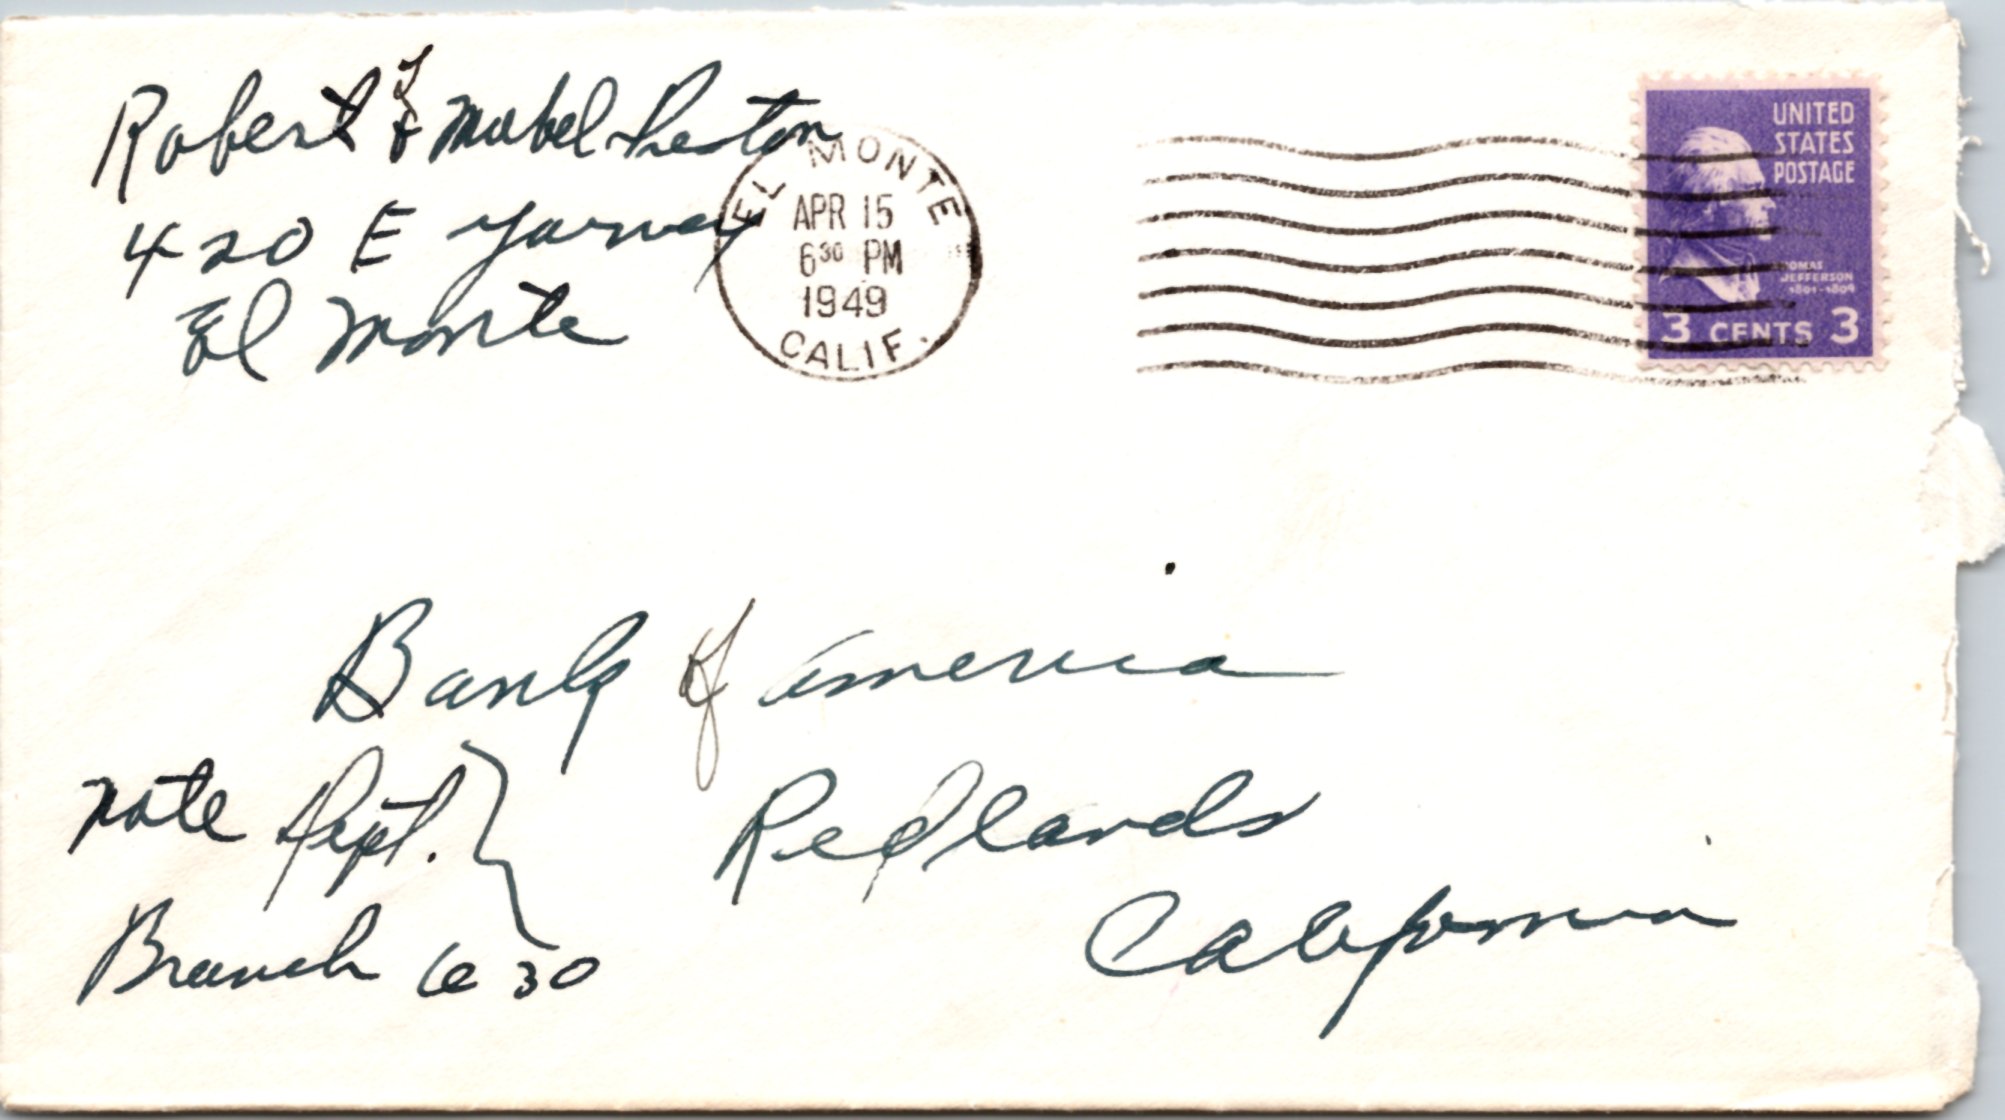 Robert & Mabel Preston
420 E Garvey
El Monte
EL MONTE
APR 15
6 30 PM
1949
CALIF.
UNITED
STATES
POSTAGE
THOMAS
JEFFERSON
1801-1809
3 CENTS 3
Bank of America
Note Dept.
Redlands
California
Branch 630